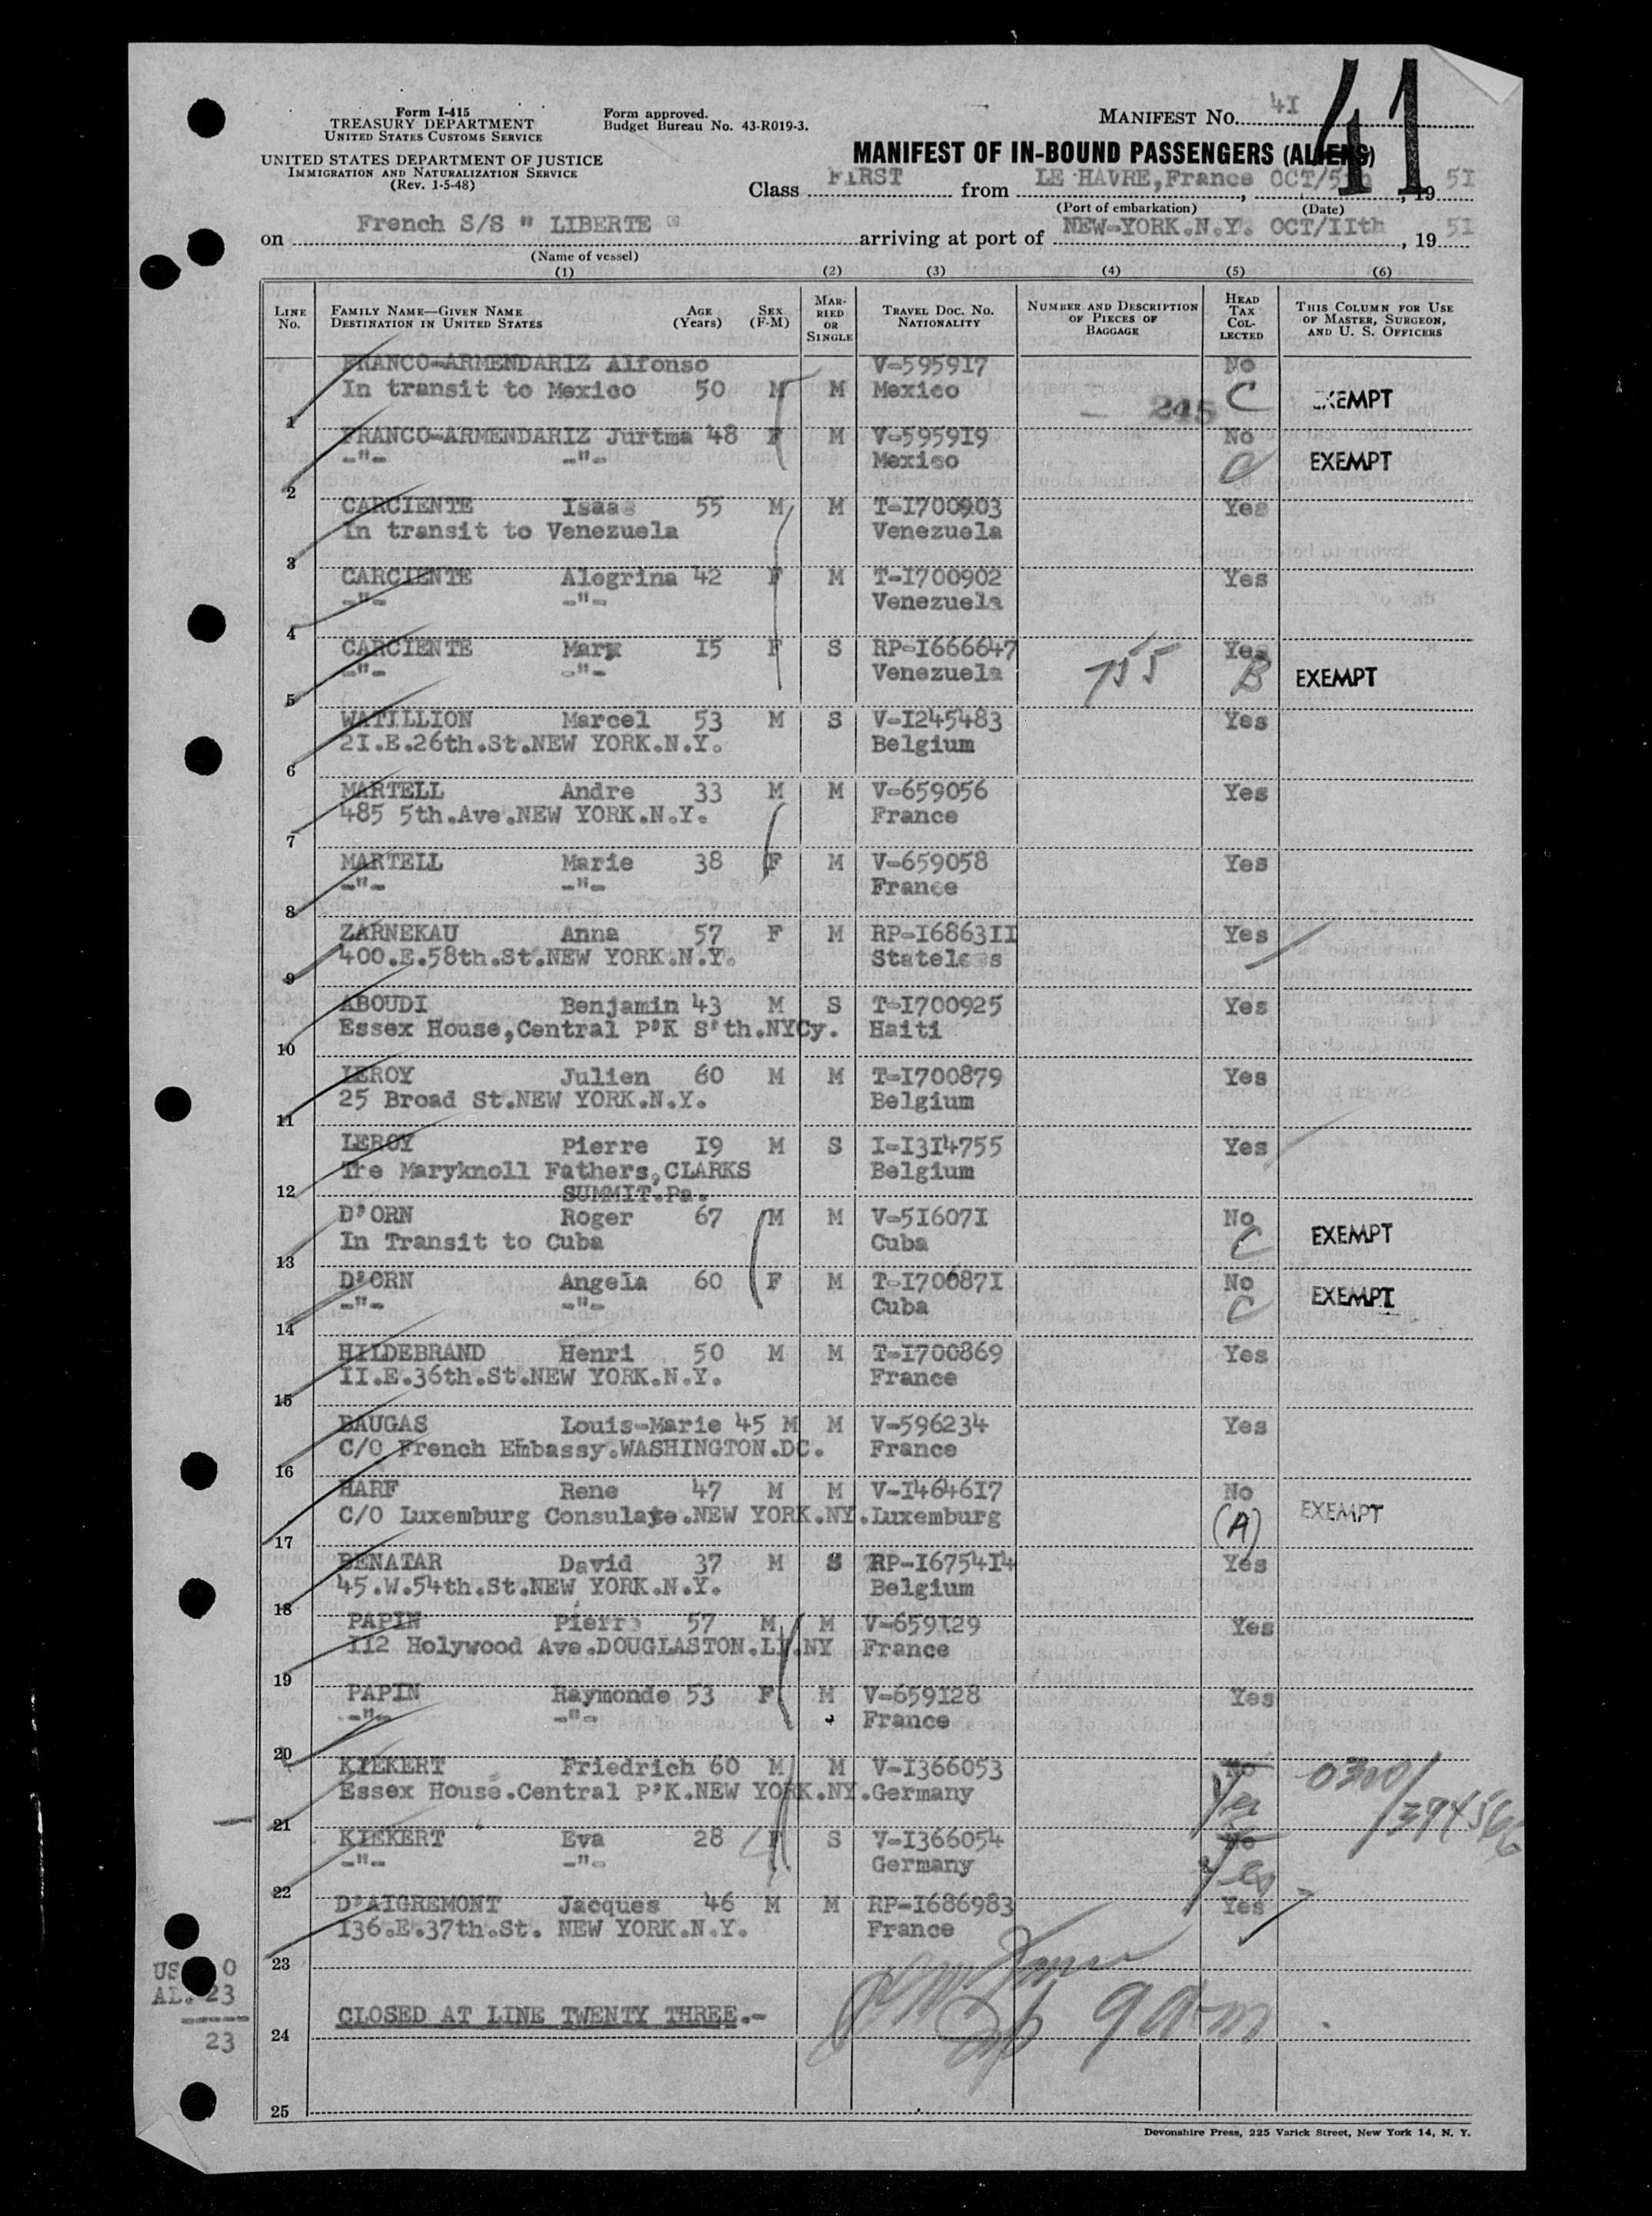 Form I-415
TREASURY DEPARTMENT
UNITED STATES CUSTOMS SERVICE
UNITED STATES DEPARTMENT OF JUSTICE
IMMIGRATION AND NATURALIZATION SERVICE
(Rev. 1-5-48)
Form approved.
Budget Bureau No. 43-R019-3.
MANIFEST No. 4I
41
MANIFEST OF IN-BOUND PASSENGERS (ALIENS)
Class FIRST from LE HAVRE,France OCT/5th, 19 5I
(Port of embarkation) (Date)
on French S/S " LIBERTE " arriving at port of NEW-YORK.N.Y. OCT/IIth, 19 5I
(Name of vessel)
(1) (2) (3) (4) (5) (6)
LINE No.
FAMILY NAME—GIVEN NAME DESTINATION IN UNITED STATES
AGE (Years)
SEX (F-M)
MARRIED OR SINGLE
TRAVEL DOC. No. NATIONALITY
NUMBER AND DESCRIPTION OF PIECES OF BAGGAGE
HEAD TAX COLLECTED
THIS COLUMN FOR USE OF MASTER, SURGEON, AND U. S. OFFICERS
FRANCO-ARMENDARIZ Alfonso V-595917 No
1 In transit to Mexico 50 M M Mexico 245 C EXEMPT
FRANCO-ARMENDARIZ Jurtma 48 F M V-595919 No
2 -"- -"- Mexico C EXEMPT
CARCIENTE Isaac 55 M M T-I700903 Yes
3 In transit to Venezuela Venezuela
CARCIENTE Alegrina 42 F M T-I700902 Yes
4 -"- -"- Venezuela
CARCIENTE Mary I5 F S RP-I666647 Yes
5 -"- -"- Venezuela 755 B EXEMPT
WATILLION Marcel 53 M S V-I245483 Yes
6 2I.E.26th.St.NEW YORK.N.Y. Belgium
MARTELL Andre 33 M M V-659056 Yes
7 485 5th.Ave.NEW YORK.N.Y. France
MARTELL Marie 38 F M V-659058 Yes
8 -"- -"- France
ZARNEKAU Anna 57 F M RP-I6863II Yes
9 400.E.58th.St.NEW YORK.N.Y. Stateless
ABOUDI Benjamin 43 M S T-I700925 Yes
10 Essex House,Central P'K S'th.NYCy. Haiti
LEROY Julien 60 M M T-I700879 Yes
11 25 Broad St.NEW YORK.N.Y. Belgium
LEROY Pierre I9 M S I-I314755 Yes
The Maryknoll Fathers,CLARKS Belgium
12 SUMMIT.Pa.
D'ORN Roger 67 M M V-5I607I No
13 In Transit to Cuba Cuba C EXEMPT
D'ORN Angela 60 F M T-I70087I No
14 -"- -"- Cuba C EXEMPT
HILDEBRAND Henri 50 M M T-I700869 Yes
15 II.E.36th.St.NEW YORK.N.Y. France
BAUGAS Louis-Marie 45 M M V-596234 Yes
16 C/O French Embassy.WASHINGTON.DC. France
HARF Rene 47 M M V-I4646I7 No
17 C/O Luxemburg Consulate.NEW YORK.NY.Luxemburg (A) EXEMPT
BENATAR David 37 M S RP-I6754I4 Yes
18 45.W.54th.St.NEW YORK.N.Y. Belgium
PAPIN Pierre 57 M M V-659I29 Yes
19 II2 Holywood Ave.DOUGLASTON.LI.NY France
PAPIN Raymonde 53 F M V-659I28 Yes
20 -"- -"- France
KIEKERT Friedrich 60 M M V-I366053 No 0300/394566
21 Essex House.Central P'K.NEW YORK.NY.Germany Yes
KIEKERT Eva 28 F S V-I366054 No
22 -"- -"- Germany Yes
D'AIGREMONT Jacques 46 M M RP-I686983 Yes
23 I36.E.37th.St. NEW YORK.N.Y. France
US 0
AL. 23
23
24 CLOSED AT LINE TWENTY THREE.-
25
Devonshire Press, 225 Varick Street, New York 14, N. Y.